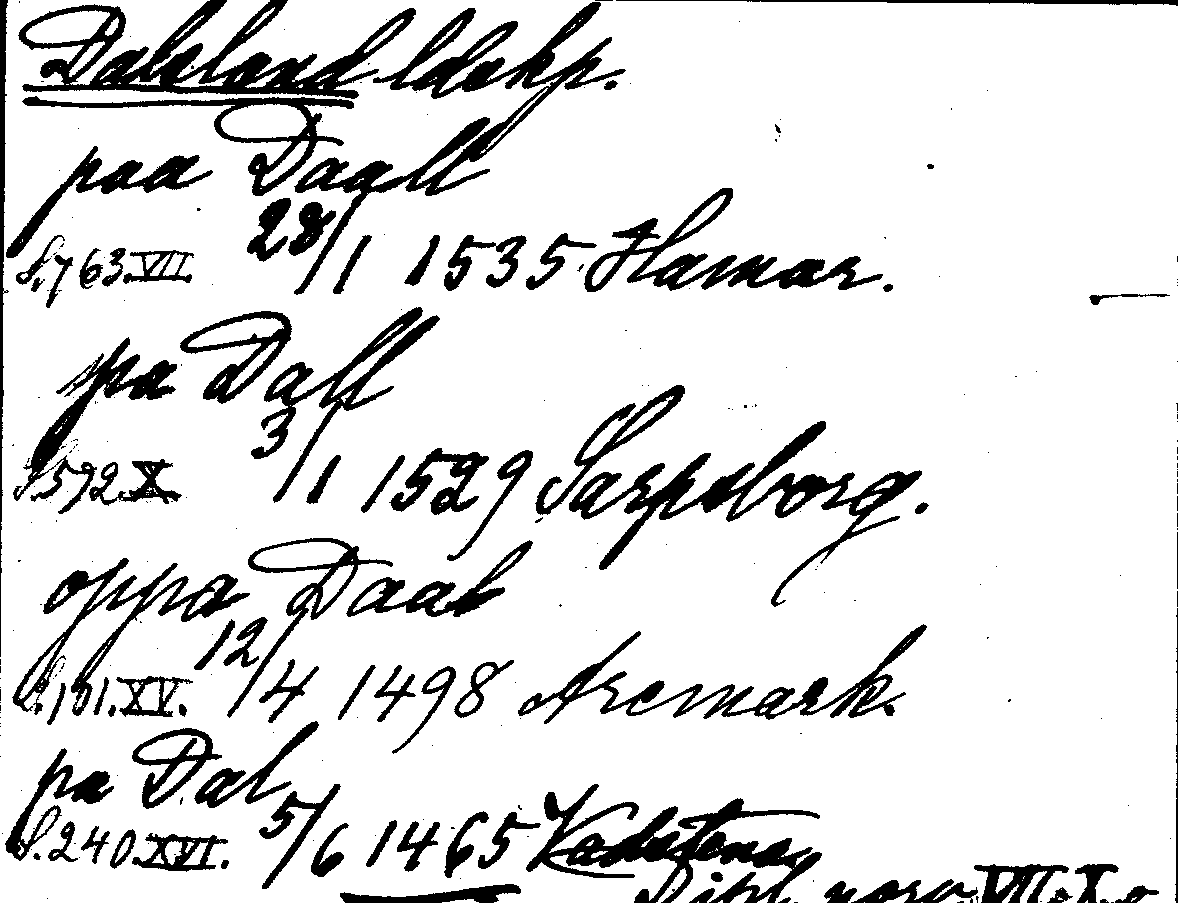 Dalsland ldskp.
paa Daall
S.763.VII. 28/1 1535 Hamar.
pa Dall
S.592.X. 3/1 1529 Sarpsborg.
oppa Daal
S.101.XV. 12/4 1498 Aremark.
pa Dal
S.240.XVI. 5/6 1465 Vadstena
Dipl. norv. VII. X.